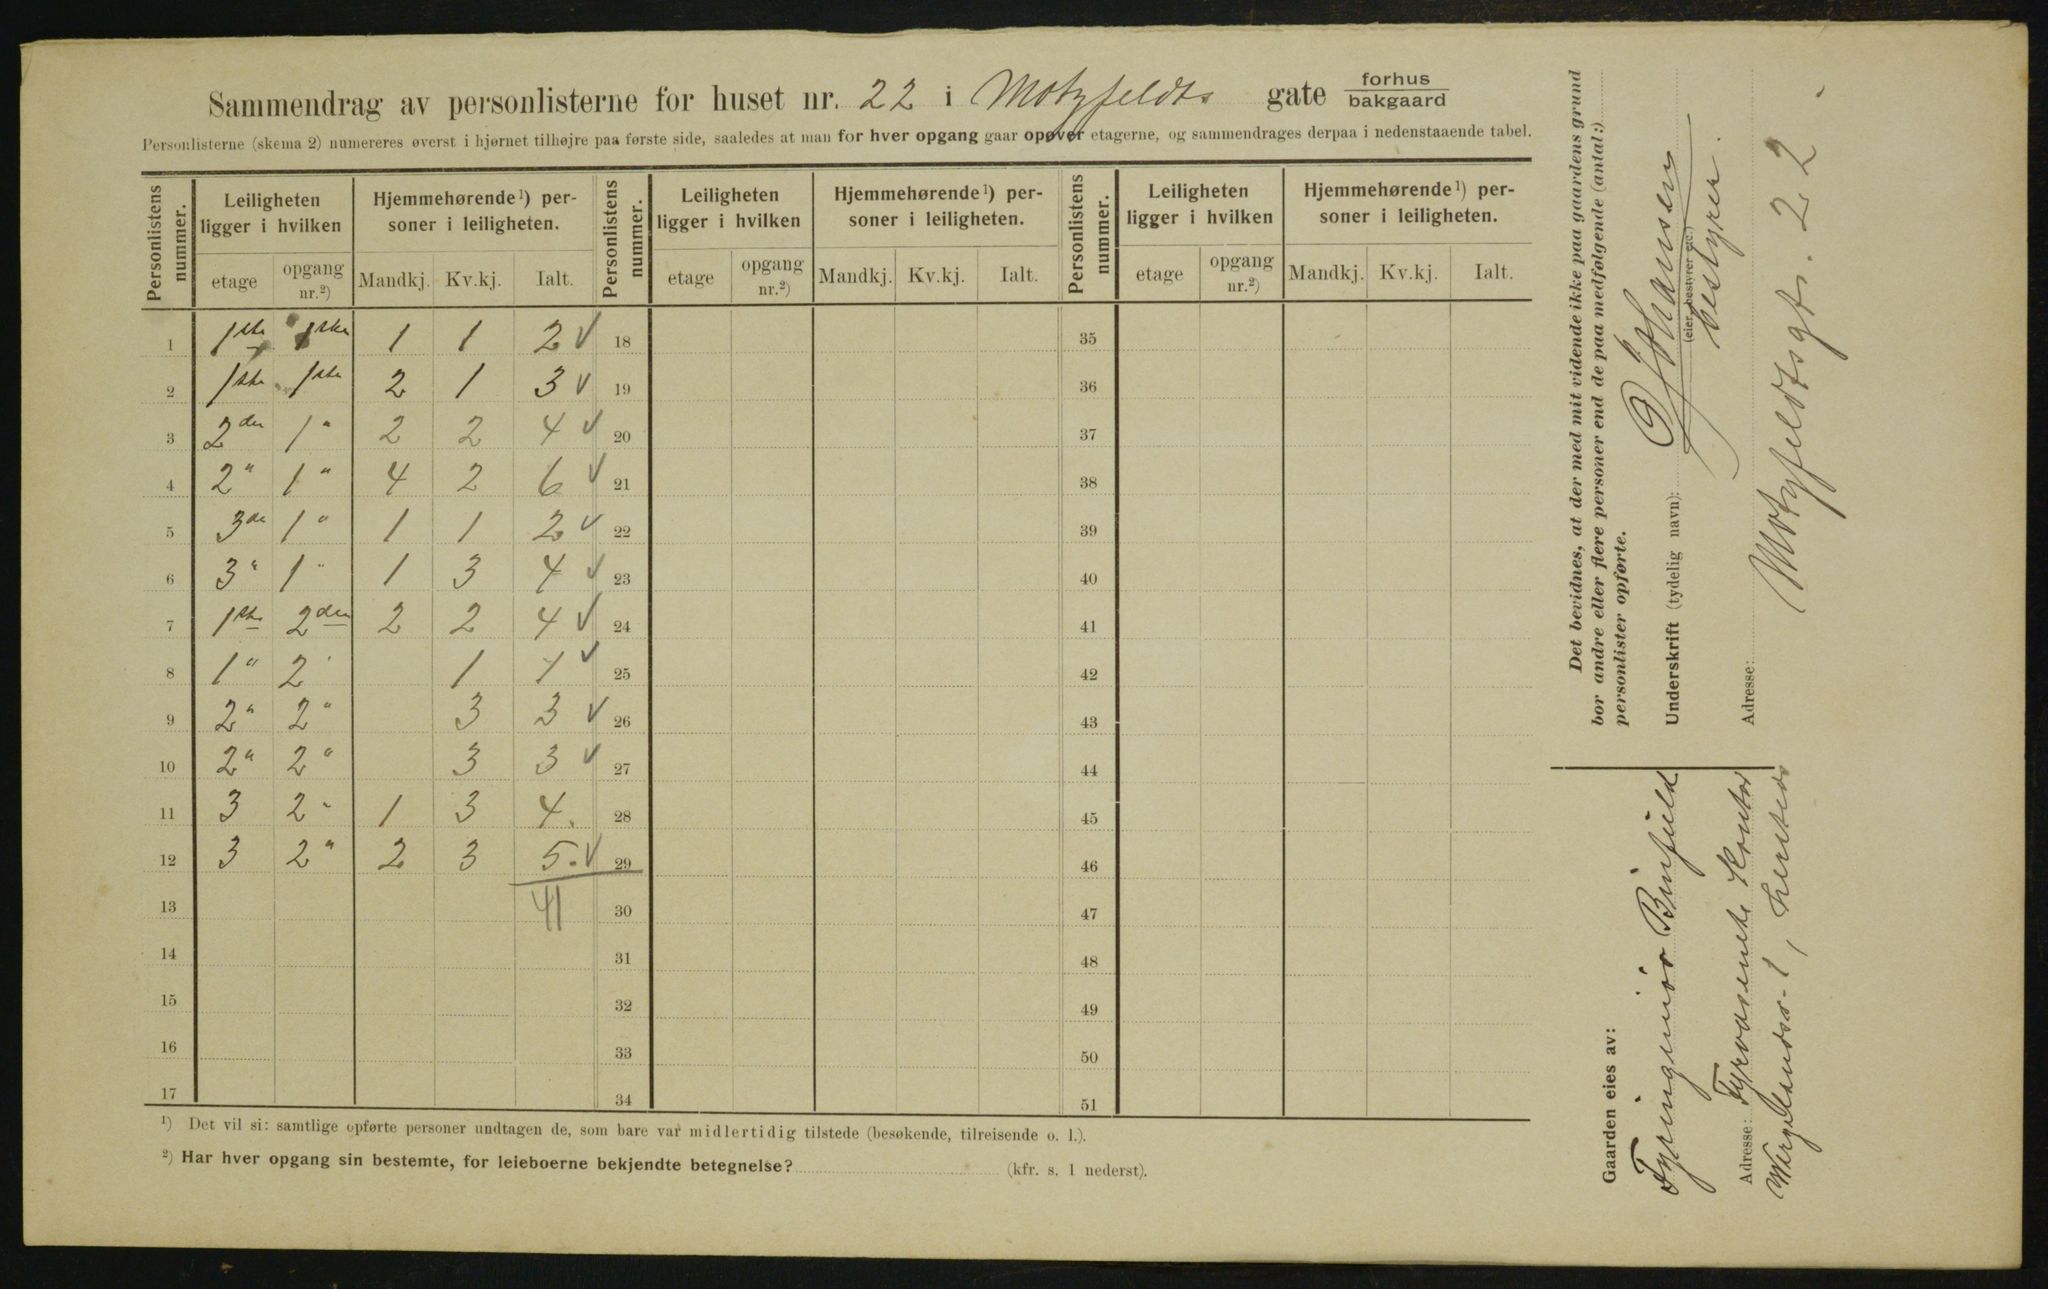 Sammendrag av personlisterne for huset nr. 22 i Motzfeldts gate forhus
bakgaard
Personlisterne (skema 2) numereres øverst i hjørnet tilhøjre paa første side, saaledes at man for hver opgang gaar opover etagerne, og sammendrages derpaa i nedenstaaende tabel.
Personlistens nummer. Leiligheten ligger i hvilken Hjemmehørende¹) personer i leiligheten. Personlistens nummer. Leiligheten ligger i hvilken Hjemmehørende¹) personer i leiligheten. Personlistens nummer. Leiligheten ligger i hvilken Hjemmehørende¹) personer i leiligheten.
etage opgang nr.²) Mandkj. Kv.kj. Ialt. etage opgang nr.²) Mandkj. Kv.kj. Ialt. etage opgang nr.²) Mandkj. Kv.kj. Ialt.
1 1ste 1ste 1 1 2 √ 18 35
2 1ste 1ste 2 1 3 √ 19 36
3 2den 1 " 2 2 4 √ 20 37
4 2 " 1 " 4 2 6 √ 21 38
5 3de 1 " 1 1 2 √ 22 39
6 3 " 1 " 1 3 4 √ 23 40
7 1ste 2den 2 2 4 √ 24 41
8 1 " 2 " 1 1 √ 25 42
9 2 " 2 " 3 3 √ 26 43
10 2 " 2 " 3 3 √ 27 44
11 3 2 " 1 3 4. 28 45
12 3 2 " 2 3 5. √ 29 46
13 41 30 47
14 31 48
15 32 49
16 33 50
17 34 51
¹) Det vil si: samtlige opførte personer undtagen de, som bare var midlertidig tilstede (besøkende, tilreisende o. l.).
²) Har hver opgang sin bestemte, for leieboerne bekjendte betegnelse? (kfr. s. 1 nederst).
Det bevidnes, at der med mit vidende ikke paa gaardens grund
bor andre eller flere personer end de paa medfølgende (antal:)
personlister opførte.
Underskrift (tydelig navn): Johansen
(eier, bestyrer etc.)
bestyrer.
Adresse: Motzfeldtsgt. 22.
Gaarden eies av:
Fyringeniør
Adresse: Fyrvæsenets Kontor
Wergelandsv. 1,